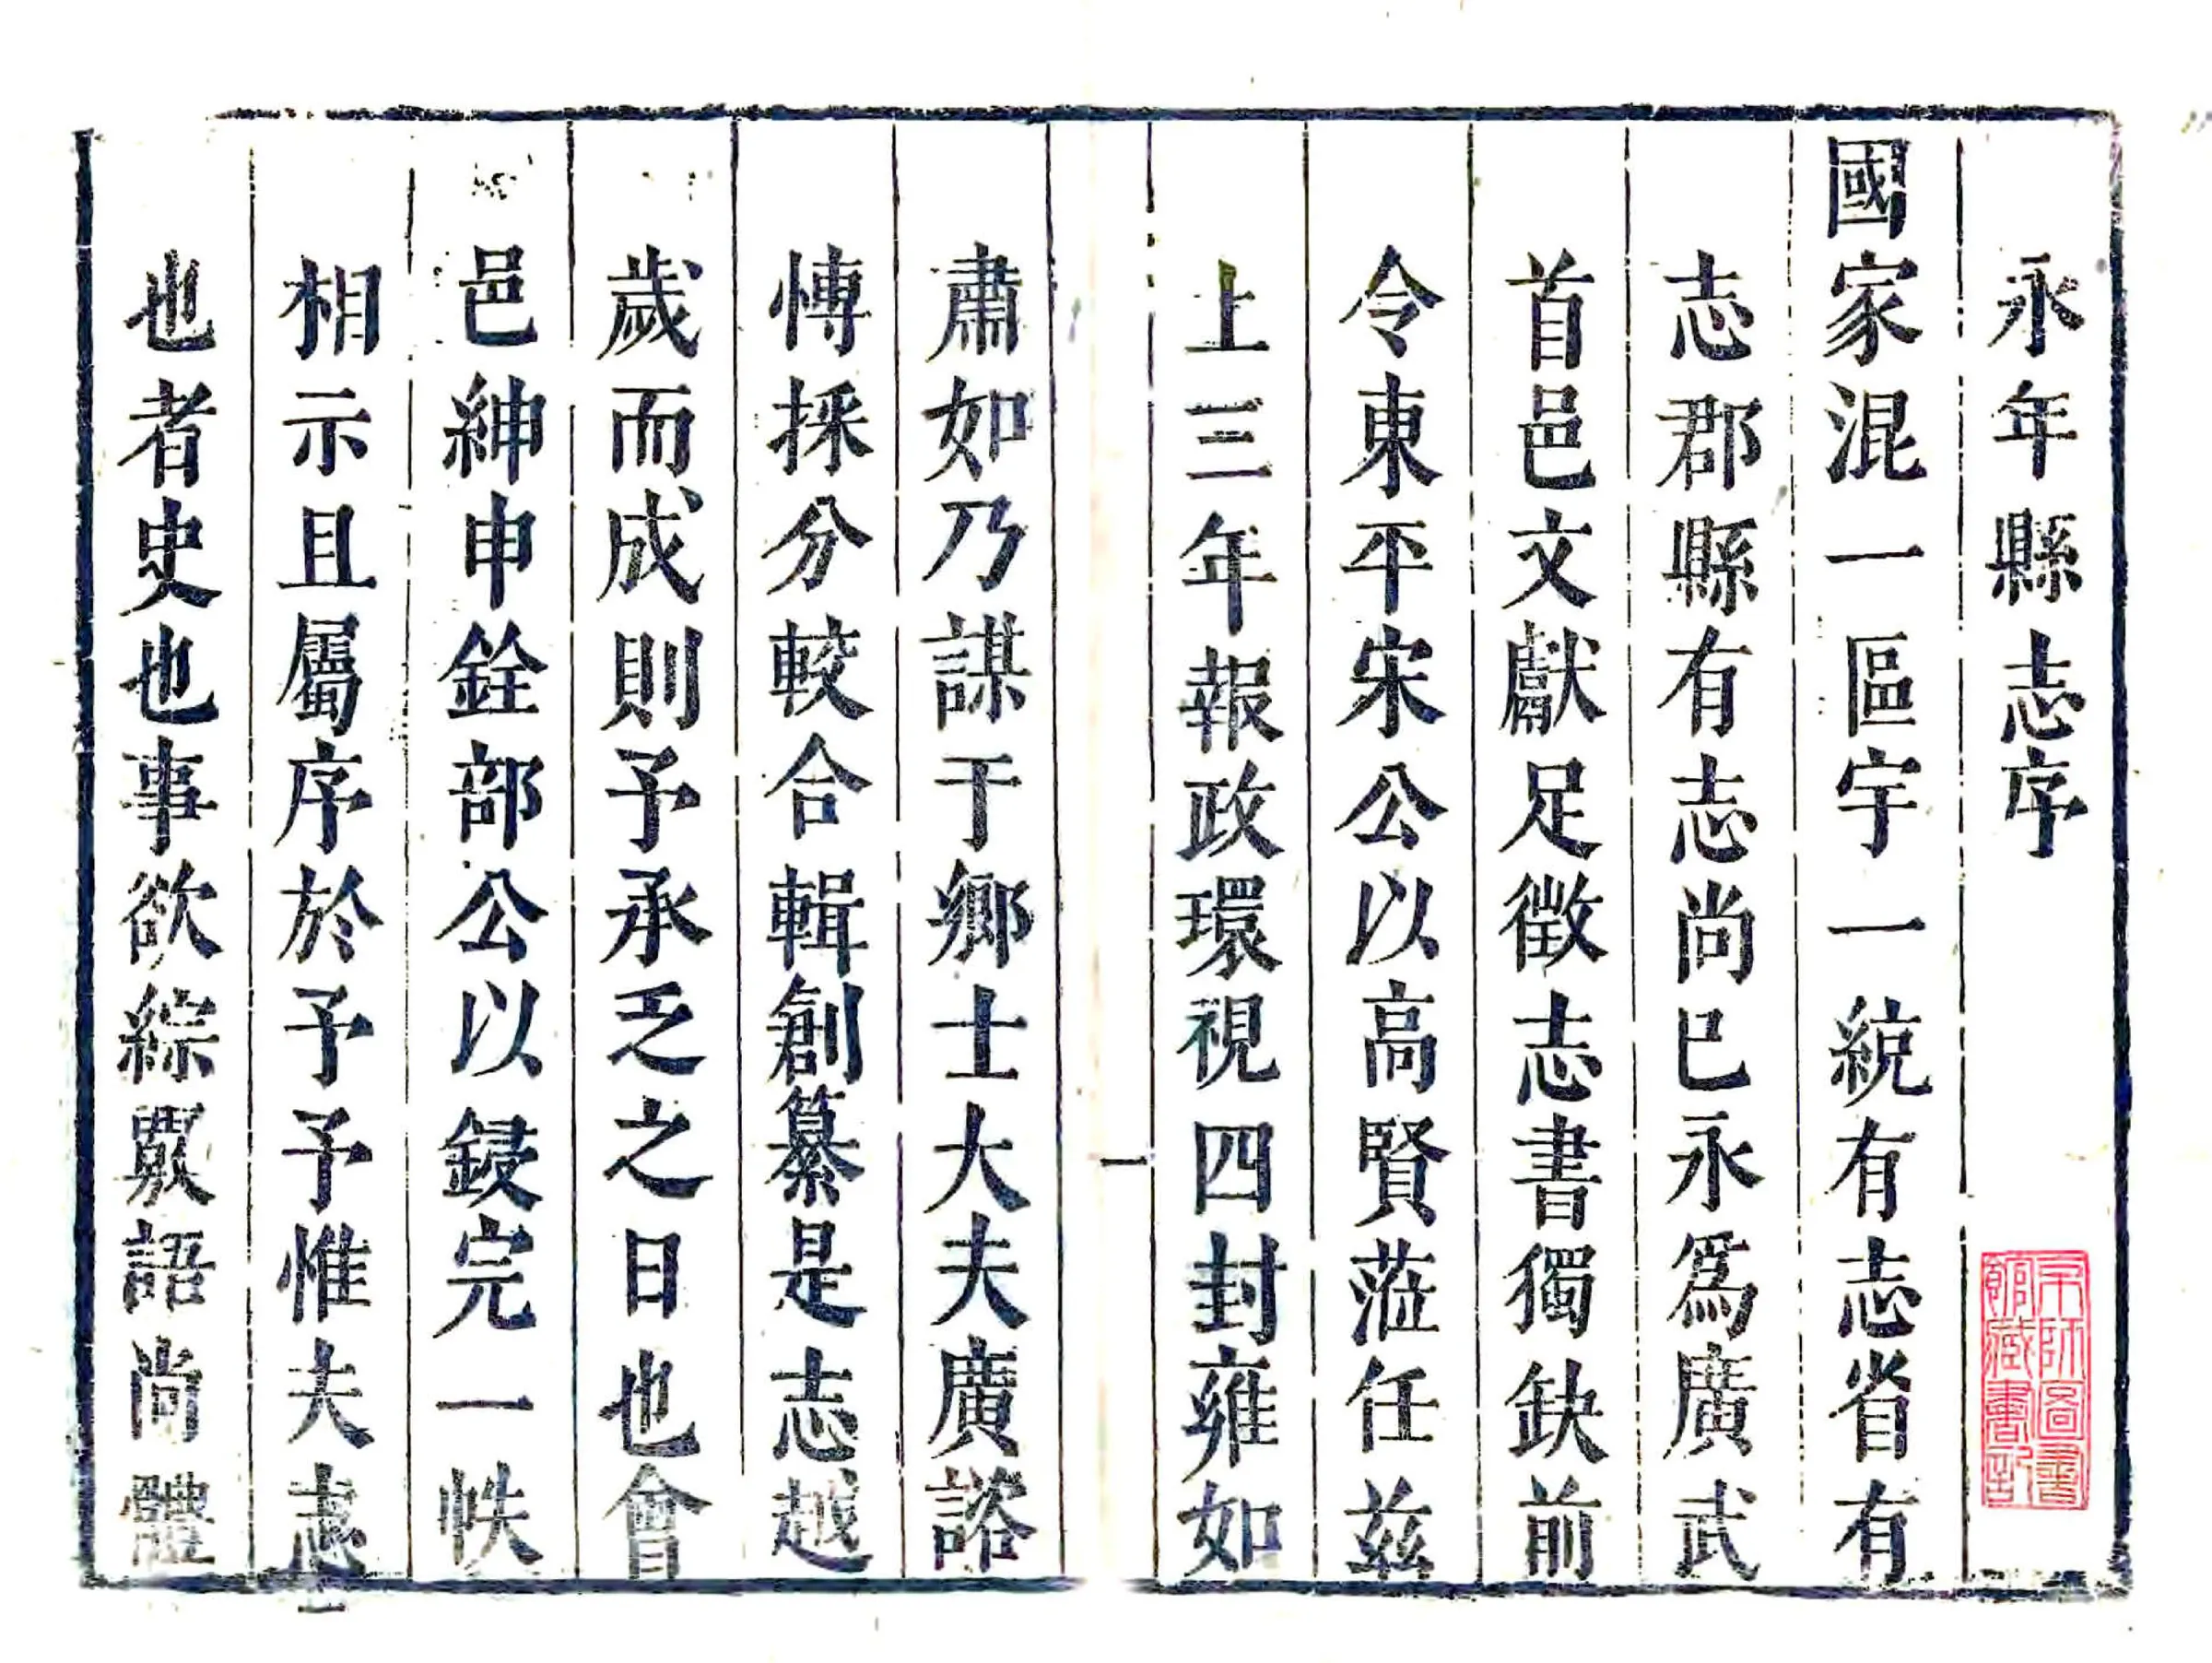 永年縣志序
國家混一區宇一統有志省有
志郡縣有志尚已永爲廣武
首邑文獻足徵志書獨缺前
令東平宋公以高賢蒞任茲
上三年報政環視四封雍如
肅如乃謀于鄉士大夫廣諮
博採分較合輯創纂是志越
歲而成則予承乏之日也會
邑紳申銓部公以鋟完一帙
相示且屬序於予予惟夫志
也者史也事欲綜覈語尚體
一
京師圖書
館藏書記